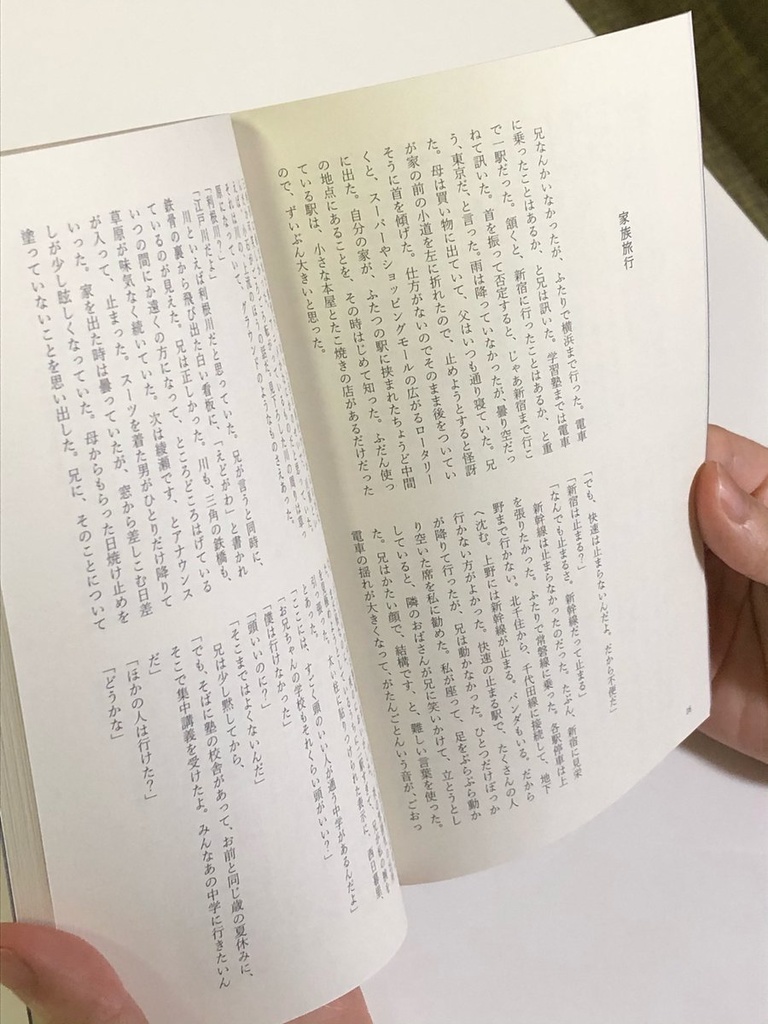 家族旅行
兄なんかいなかったが、ふたりで横浜まで行った。電車
に乗ったことはあるか、と兄は訊いた。学習塾までは電車
で一駅だった。頷くと、新宿に行ったことはあるか、と重
ねて訊いた。首を振って否定すると、じゃあ新宿まで行こ
う、東京だ、と言った。雨は降っていなかったが、曇り空だっ
た。母は買い物に出ていて、父はいつも通り寝ていた。兄
が家の前の小道を左に折れたので、止めようとすると怪訝
そうに首を傾げた。仕方がないのでそのまま後をついてい
くと、スーパーやショッピングモールの広がるロータリー
に出た。自分の家が、ふたつの駅に挟まれたちょうど中間
の地点にあることを、その時はじめて知った。ふだん使っ
ている駅は、小さな本屋とたこ焼きの店があるだけだった
ので、ずいぶん大きいと思った。
「でも、快速は止まらないんだよ。だから不便だ」
「新宿は止まる？」
「なんでも止まるさ。新幹線だって止まる」
新幹線は止まらなかったのだった。たぶん、新宿に見栄
を張りたかった。ふたりで常磐線に乗った。各駅停車は上
野まで行かない。北千住から、千代田線に接続して、地下
へ沈む。上野には新幹線が止まる。パンダもいる。だから
行かない方がよかった。快速の止まる駅で、たくさんの人
が降りて行ったが、兄は動かなかった。ひとつだけぽっか
り空いた席を私に勧めた。私が座って、足をぶらぶら動か
していると、隣のおばさんが兄に笑いかけて、立とうとし
た。兄はかたい顔で、結構です、と、難しい言葉を使った。
電車の揺れが大きくなって、がたんごとんいう音が、ごおっ
「利根川？」
「江戸川だよ」
川といえば利根川だと思っていた。兄が言うと同時に、
鉄骨の裏から飛び出た白い看板に、「えどがわ」と書かれ
ているのが見えた。兄は正しかった。川も、三角の鉄橋も、
いつの間にか遠くの方になって、ところどころはげている
草原が味気なく続いていた。次は綾瀬です、とアナウンス
が入って、止まった。スーツを着た男がひとりだけ降りて
いった。家を出た時は曇っていたが、窓から差しこむ日差
しが少し眩しくなっていた。母からもらった日焼け止めを
塗っていないことを思い出した。兄に、そのことについて
とあった。
「ここには、すごく頭のいい人が通う中学があるんだよ」
「お兄ちゃんの学校もそれくらい頭がいい？」
「僕は行けなかった」
「頭いいのに？」
「そこまではよくないんだ」
兄は少し黙ってから、
「でも、そばに塾の校舎があって、お前と同じ歳の夏休みに、
そこで集中講義を受けたよ。みんなあの中学に行きたいん
だ」
「ほかの人は行けた？」
「どうかな」